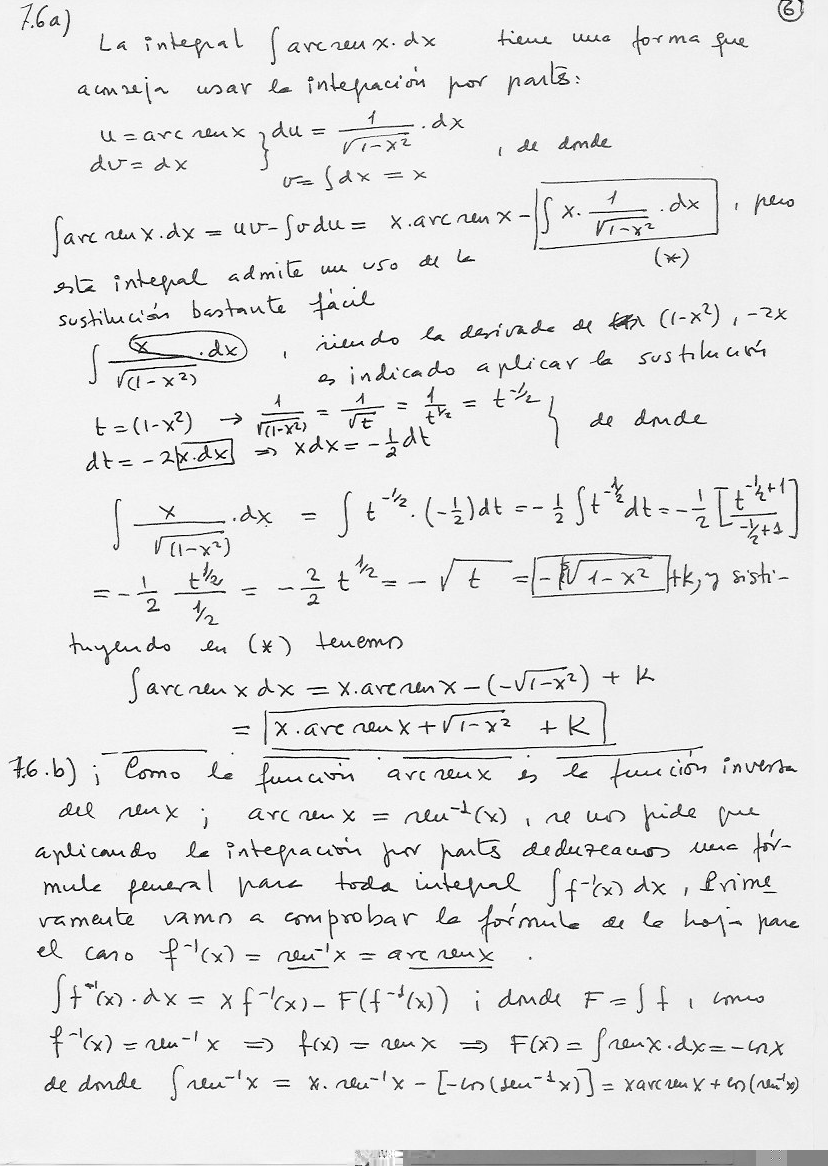 7.6a)
6
La integral ∫ arc sen x · dx tiene una forma que
aconseja usar la integración por partes:
u = arc sen x } du = 1/√(1-x²) · dx
dv = dx } v = ∫dx = x , de donde
∫ arc sen x · dx = uv - ∫v du = x · arc sen x - ∫ x · 1/√(1-x²) · dx , pero
(*)
esta integral admite un uso de la
sustitución bastante fácil
∫ x/√(1-x²) · dx , siendo la derivada de (1-x²), -2x
es indicado aplicar la sustitución
t = (1-x²) → 1/√(1-x²) = 1/√t = 1/t^1/2 = t^-1/2 }
dt = -2 x·dx ⇒ xdx = -1/2 dt } de donde
∫ x/√(1-x²) · dx = ∫ t^-1/2 · (-1/2)dt = -1/2 ∫ t^-1/2 dt = -1/2 [t^(-1/2+1)/(-1/2+1)]
= -1/2 t^1/2/(1/2) = -2/2 t^1/2 = -√t = -√(1-x²) + k, y sisti-
tuyendo en (*) tenemos
∫ arc sen x dx = x · arc sen x - (-√(1-x²)) + K
= x · arc sen x + √(1-x²) + K
7.6.b) ; Como la función arc sen x es la función inversa
del sen x ; arc sen x = sen⁻¹(x), se nos pide que
aplicando la integración por partes deduzcamos una fór-
mula general para toda integral ∫ f⁻¹(x) dx, Prime
ramente vamos a comprobar la fórmula de la hoja para
el caso f⁻¹(x) = sen⁻¹x = arc sen x .
∫ f⁻¹(x) · dx = x f⁻¹(x) - F(f⁻¹(x)) ; donde F = ∫ f , como
f⁻¹(x) = sen⁻¹ x ⇒ f(x) = sen x ⇒ F(x) = ∫ sen x · dx = -cos x
de donde ∫ sen⁻¹x = x · sen⁻¹x - [-cos(sen⁻¹x)] = x arc sen x + cos(sen⁻¹x)